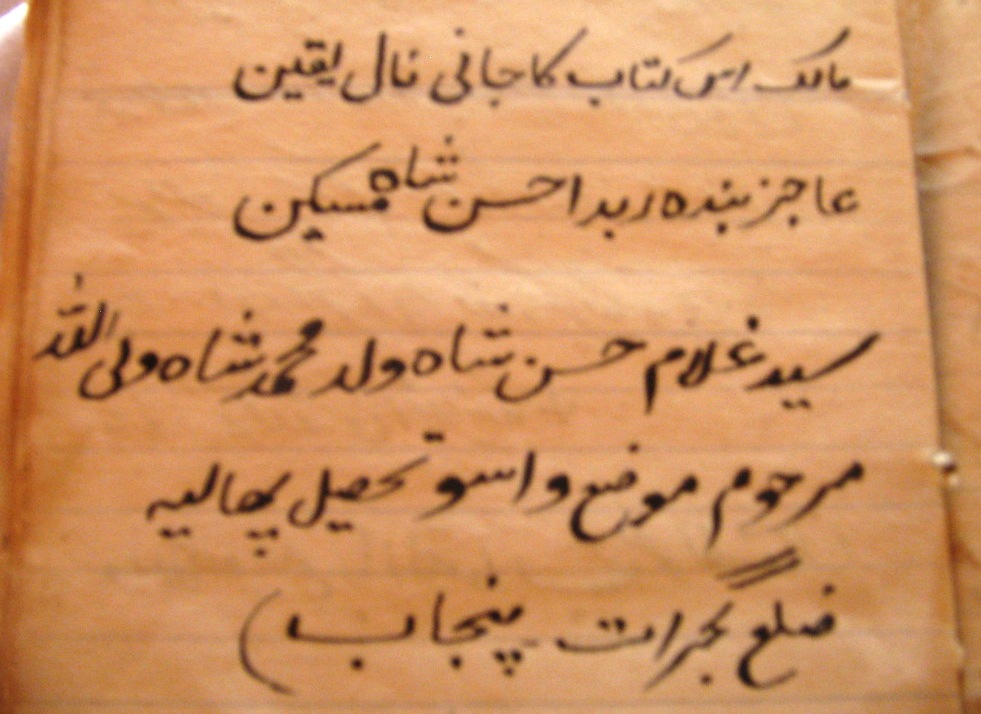 مالک اس کتاب کا جانی نال یقین
عاجز بندہ ربدا حسن شاہ مسکین
سید غلام حسن شاہ ولد محمد شاہ ولی اللہ
مرحوم موضع واسو تحصیل پھالیہ
ضلع گجرات پنجاب)